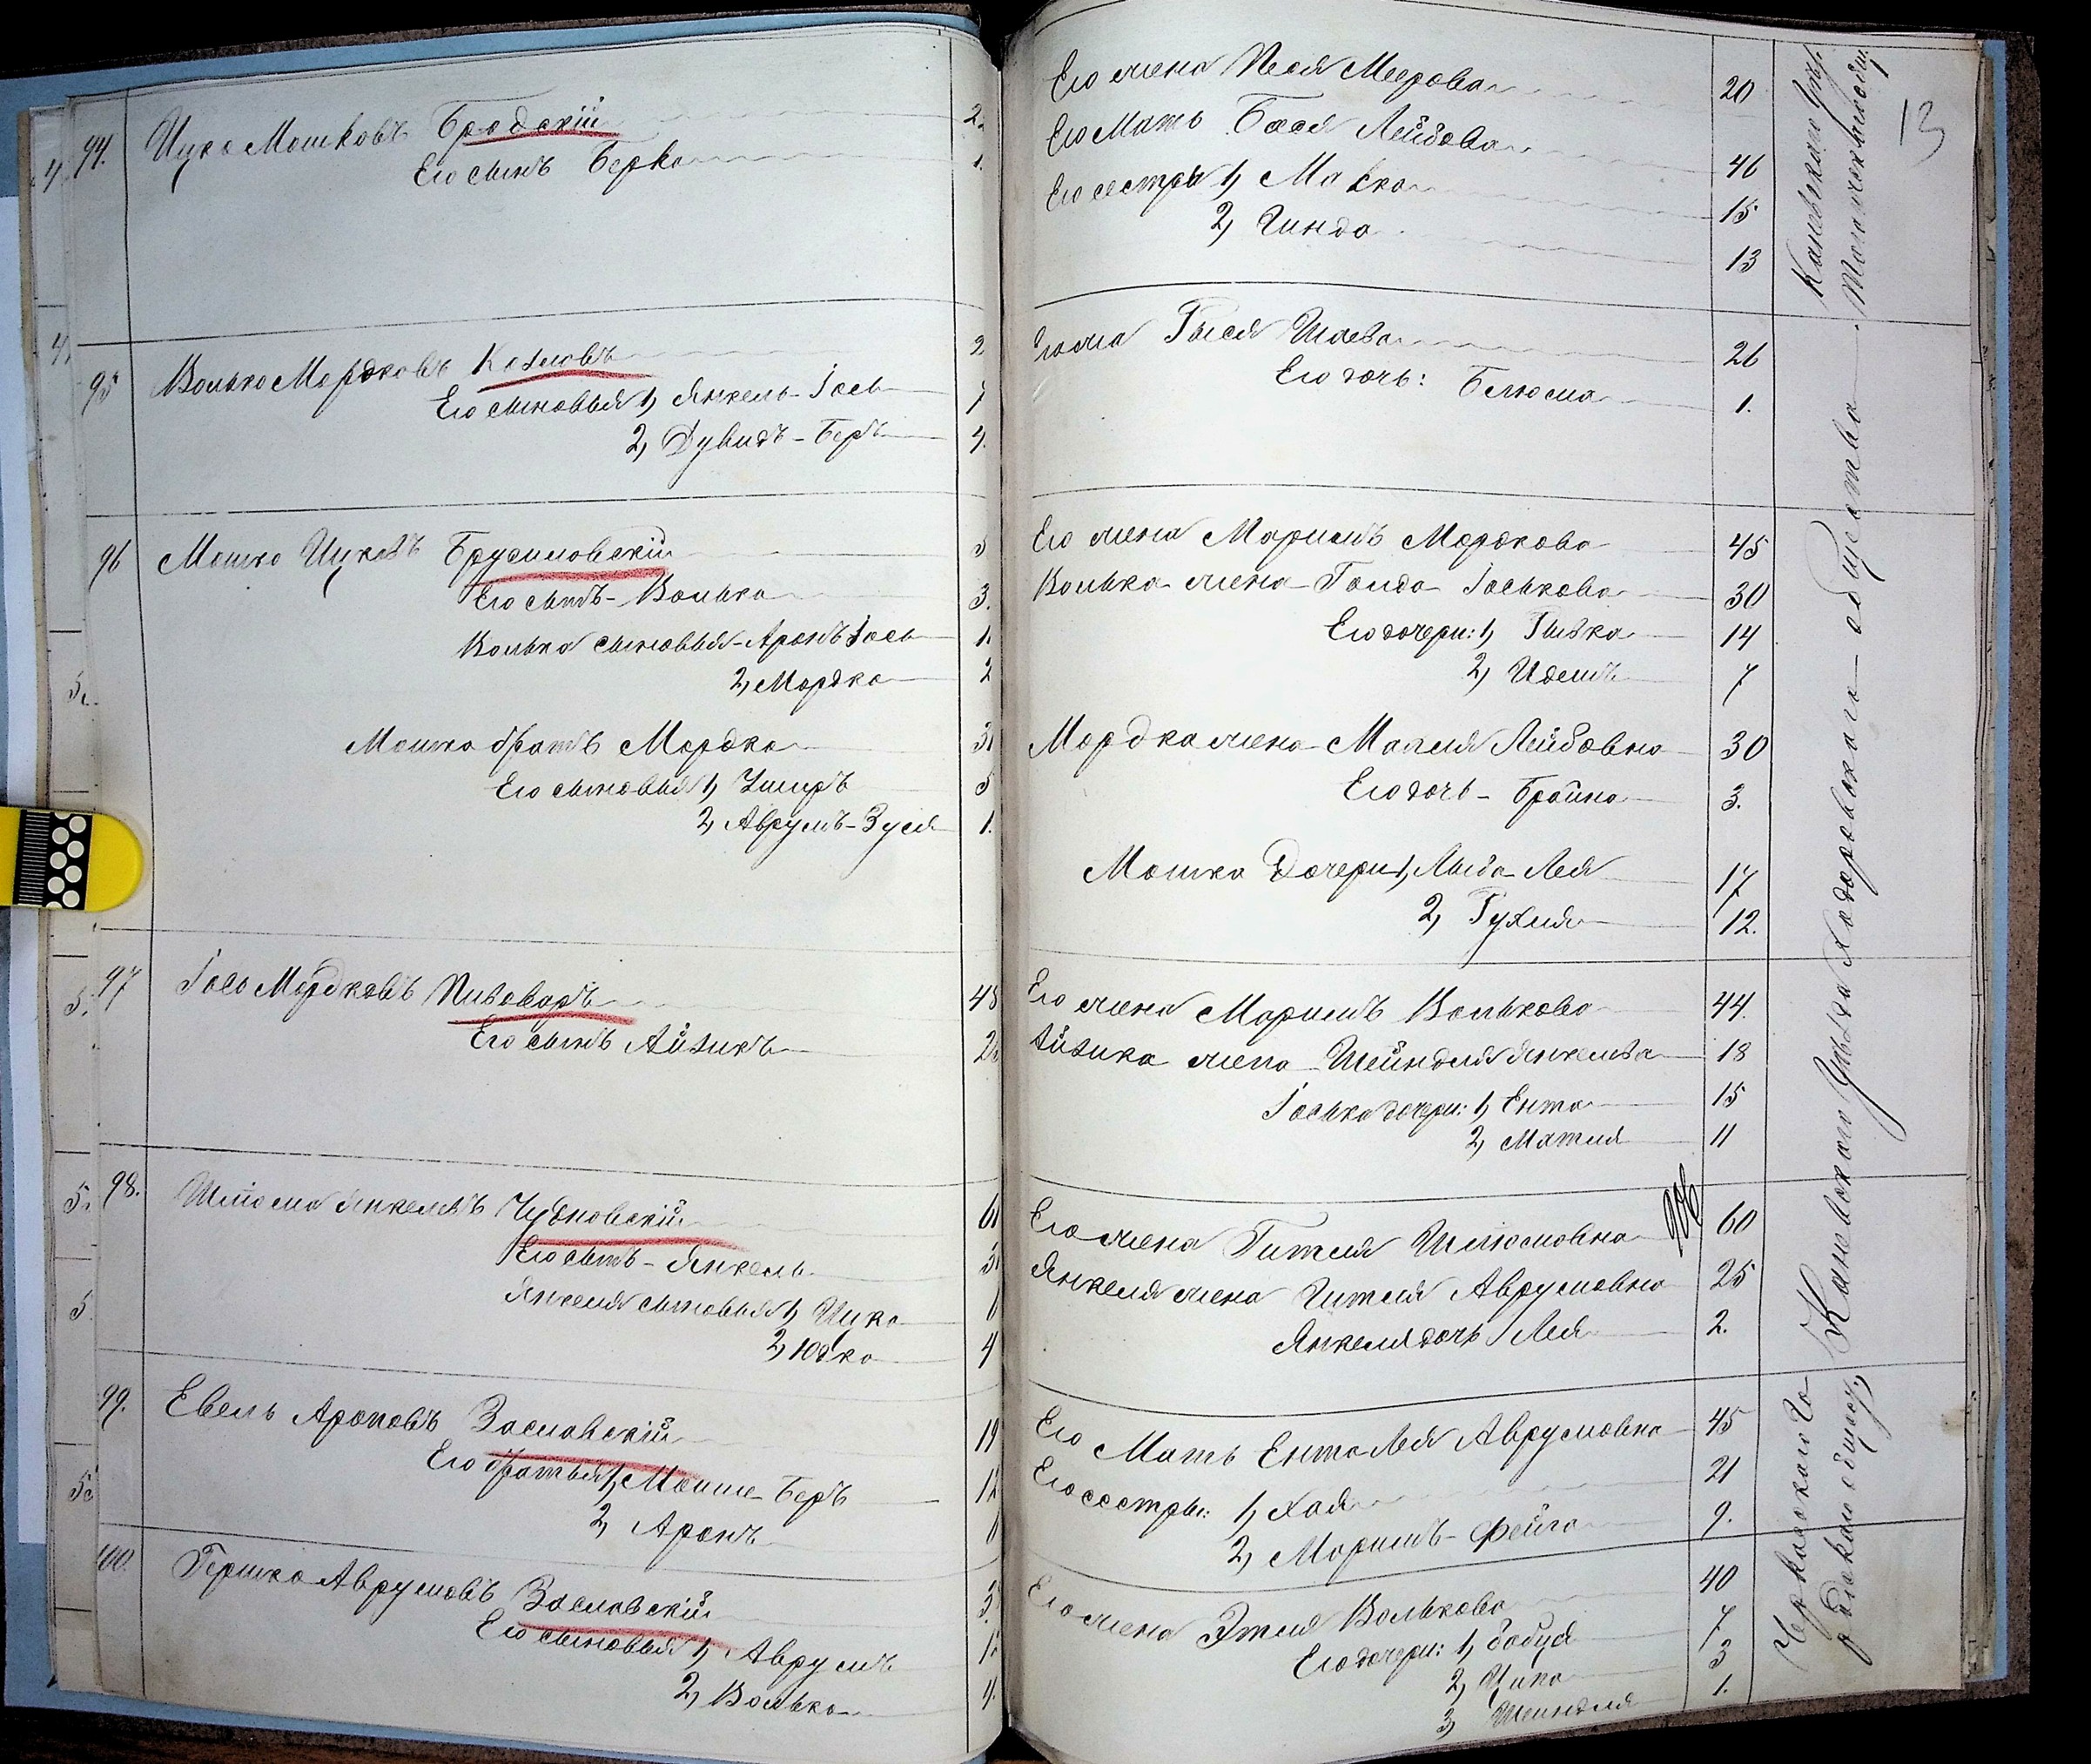 94. Ицко Мошковъ Бродскій 2
Его сынъ Берко 1.
95 Волько Мордковъ Козловъ 2
Его сыновья 1, Янкель-Іось 7
2, Дувидъ-Беръ 4.
96 Мошко Ицковъ Брусиловскій 5
Его сынъ-Волько 3.
Волька сыновья-Аронъ Іось 1.
2, Мордко 2
Мошка братъ Мордко 3
Его сыновья 1, Ушеръ 5
2, Аврумъ-Зуся 1.
97 Іось Мордковъ Пивоваръ 48
Его сынъ Айзикъ 2
98. Янкелевъ Чудновскій 6
Его сынъ-Янкель 3
Янкеля сыновья 1, Ицко
2, Юдко 4
99. Евель Ароновъ Заславскій 19
Его братья 1, Мошке-Беръ 12
2, Аронъ
100. Гершко Аврумовъ Заславскій 3
Его сыновья 1, Аврумъ 1
2, Волько 4.
13
Его жена Песя Меерова 20
Его Мать Бася Лейбова 46
Его сестры 1, Малка 15
2, Гинда 13
Его жена Рыся Шаева 26
Его дочь: Блюма 1.
Его жена Маримъ Мордкова 45
Волька жена-Голда Іоськова 30
Его дочери: 1, Рывка 14
2, Идемъ 7
Мордка жена-Малия Лейбовна 30
Его дочь-Брайна 3.
Мошка Дочери 1, Лыба-Лея 17
2, Рухля 12.
Его жена Маримъ Волькова 44.
Айзика жена-Шейндля Янкелева 18
Іоська дочери: 1, Ента 15
2, Матля 11
Его жена Гитля Шлиомовна 60
Янкеля жена Читля Аврумовна 25
Янкеля дочь Лея 2.
Его Мать Ента Лея Аврумовна 45
Его сестры: 1, Хая 21
2, Маримъ-Фейга 9.
Его жена Этля Волькова 40
Его дочери: 1, Бабуся 7
2, Ципа 3
3, Шейндля 1.
Каневскаго Уѣзда Ходоровскаго-общества
Черкаскаго Го-
родскаго общества,